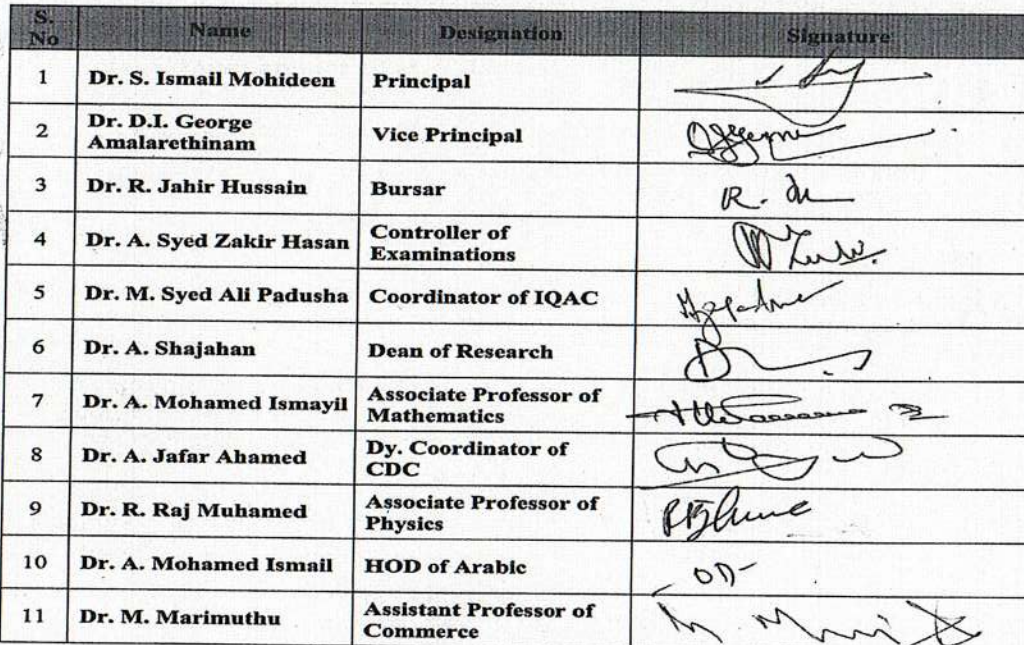 S. No Name Designation Signature
1 Dr. S. Ismail Mohideen Principal
2 Dr. D.I. George Amalarethinam Vice Principal
3 Dr. R. Jahir Hussain Bursar R.
4 Dr. A. Syed Zakir Hasan Controller of Examinations
5 Dr. M. Syed Ali Padusha Coordinator of IQAC
6 Dr. A. Shajahan Dean of Research
7 Dr. A. Mohamed Ismayil Associate Professor of Mathematics
8 Dr. A. Jafar Ahamed Dy. Coordinator of CDC
9 Dr. R. Raj Muhamed Associate Professor of Physics
10 Dr. A. Mohamed Ismail HOD of Arabic OD-
11 Dr. M. Marimuthu Assistant Professor of Commerce